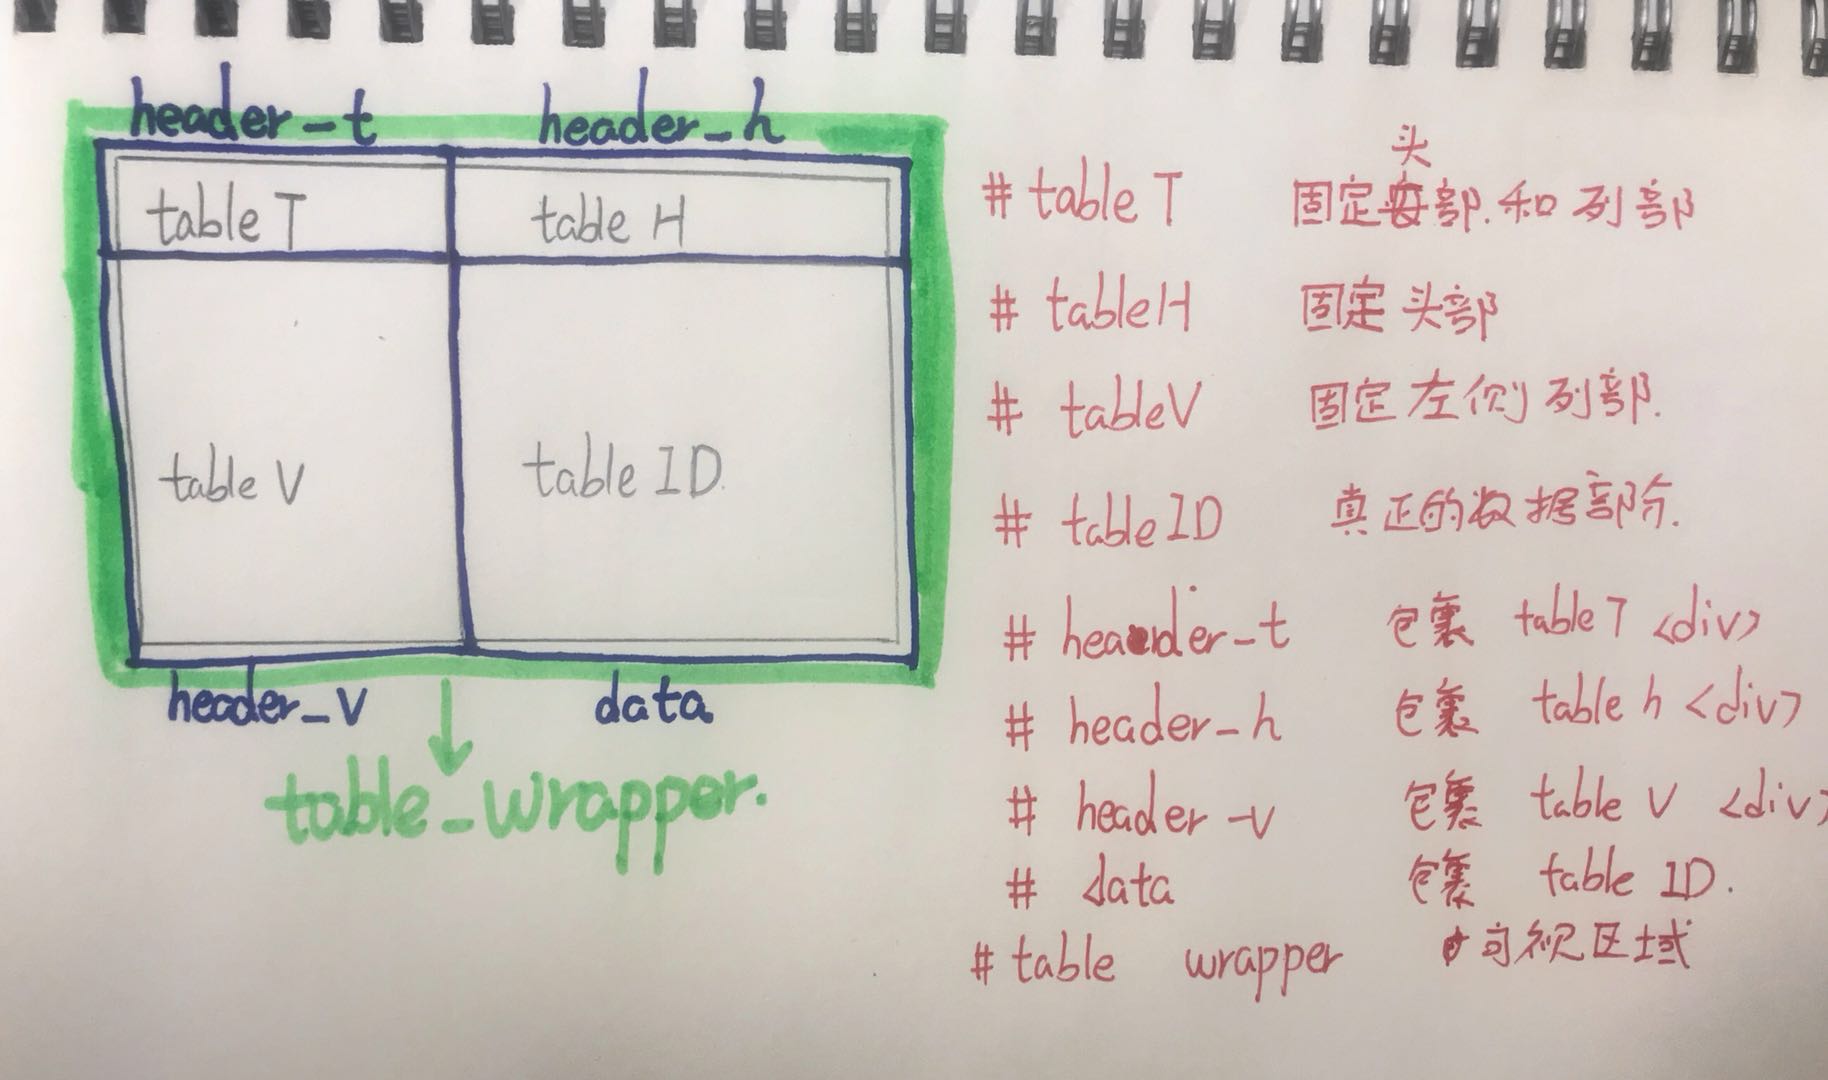 header-t header_h
table T table H
table V table ID.
header_v data
table_wrapper.
# table T 固定头部.和列部
# tableH 固定头部
# tableV 固定左侧列部.
# tableID 真正的数据部分.
# header-t 包裹 table T <div>
# header-h 包裹 table h <div>
# header-v 包裹 table V <div>
# data 包裹 table ID.
# table wrapper 可视区域